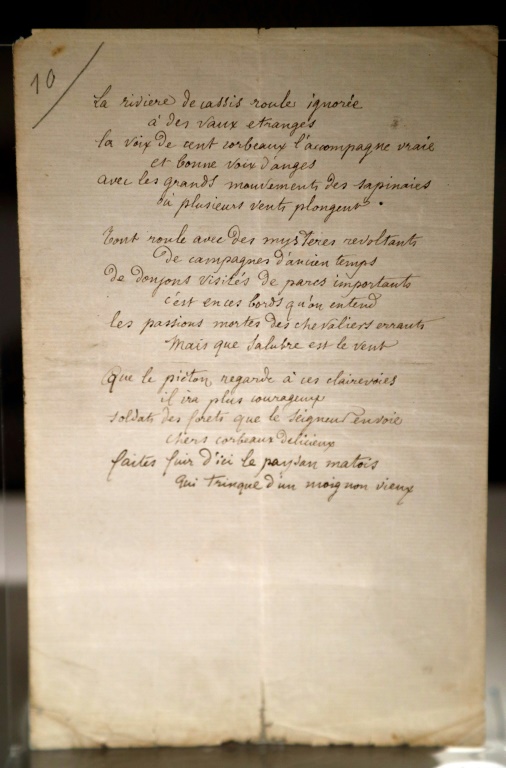 10
La rivière de cassis roule ignorée
à des vaux etranges
la voix de cent corbeaux l'accompagne vraie
et bonne voix d'anges
avec les grands mouvements des sapinaies
où plusieurs vents plongent.
Tout roule avec des mysteres revoltants
De campagnes d'ancien temps
De donjons visités de parcs importants
c'est en ces bords qu'on entend
les passions mortes des chevaliers errants
Mais que salubre est le vent
Que le piéton regarde à ces clairevoies
il ira plus courageux
soldats des forets que le seigneur envoie
chers corbeaux delicieux
faites fuir d'ici le paysan matois
qui trinque d'un moignon vieux